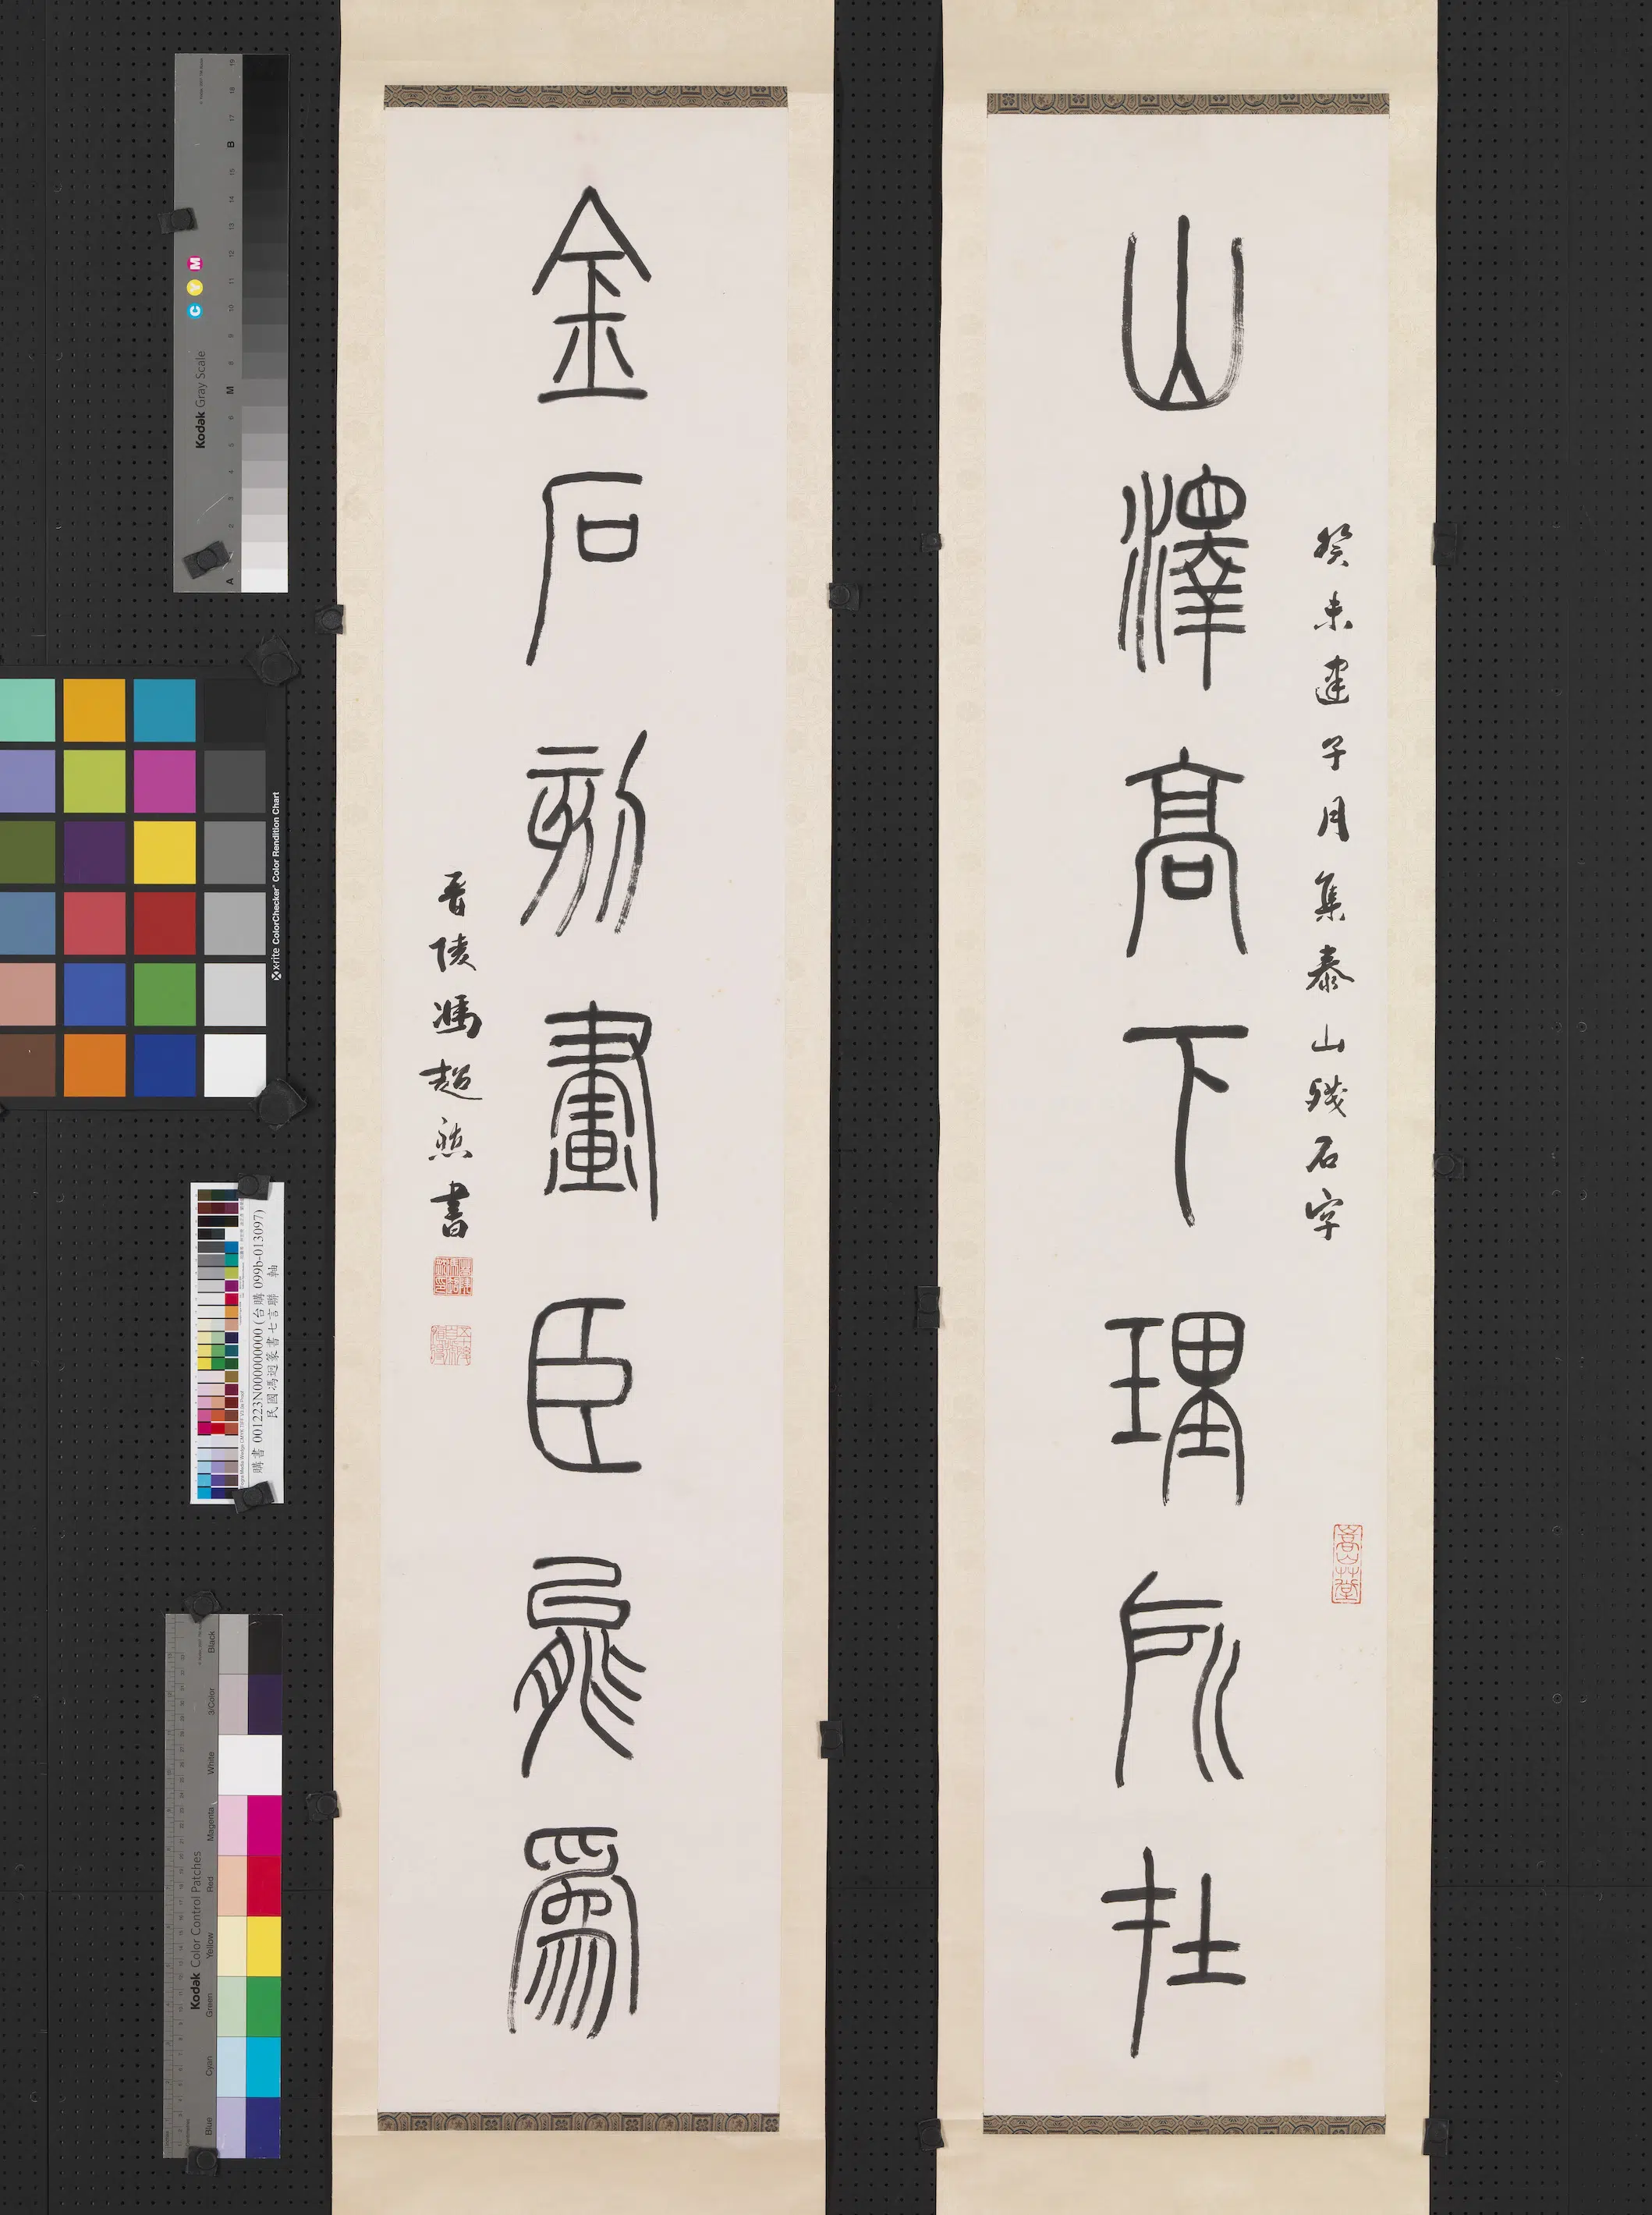 山澤高下理所在
癸未建子月集泰山殘石字
金石刻畫臣能爲
晉陵馮超然書
Kodak Gray Scale
C Y M
A
M
B
x-rite ColorChecker Color Rendition Chart
購書 001223N000000000 (台購 099b-013097)
民國馮迥篆書七言聯 軸
Kodak Color Control Patches
Blue Cyan Green Yellow Red Magenta White 3/Color Black